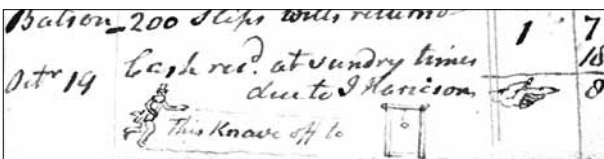 Batson 200 Slips with returns 1 7
18
Octr 19 Cash recd. at sundry times
due to J Harrison 8
This Knave off to